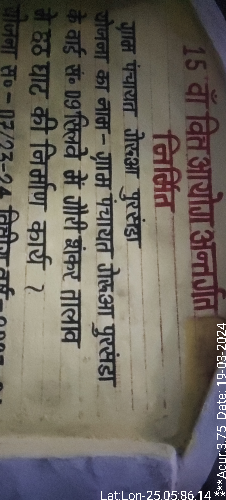 15 वाँ वित्त आयोग अन्तर्गत
निर्मित
ग्राम पंचायत गेरुआ पुरसंडा
योजना का नाम - ग्राम पंचायत गेरुआ पुरसंडा
के वार्ड सं० 09 रिस्ये में गौरी शंकर तालाब
में छठ घाट की निर्माण कार्य ।
योजना सं० - 07/23-24 वित्तीय वर्ष
***Acur 3.75 Date: 19-03-2024
Lat Lon-25.05:86.14